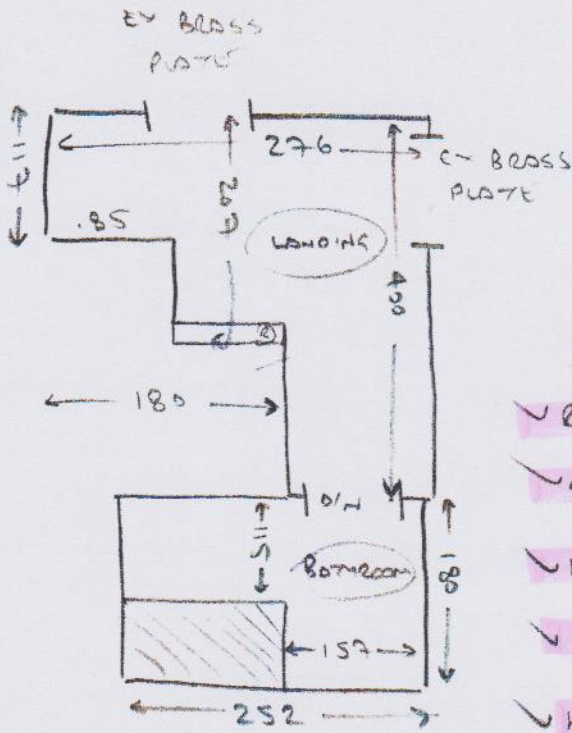 EX BRASS
PLATE
117
276
EX BRASS
PLATE
207
.85
LANDING
400
R
180
D/N
115
BATHROOM
180
157
252